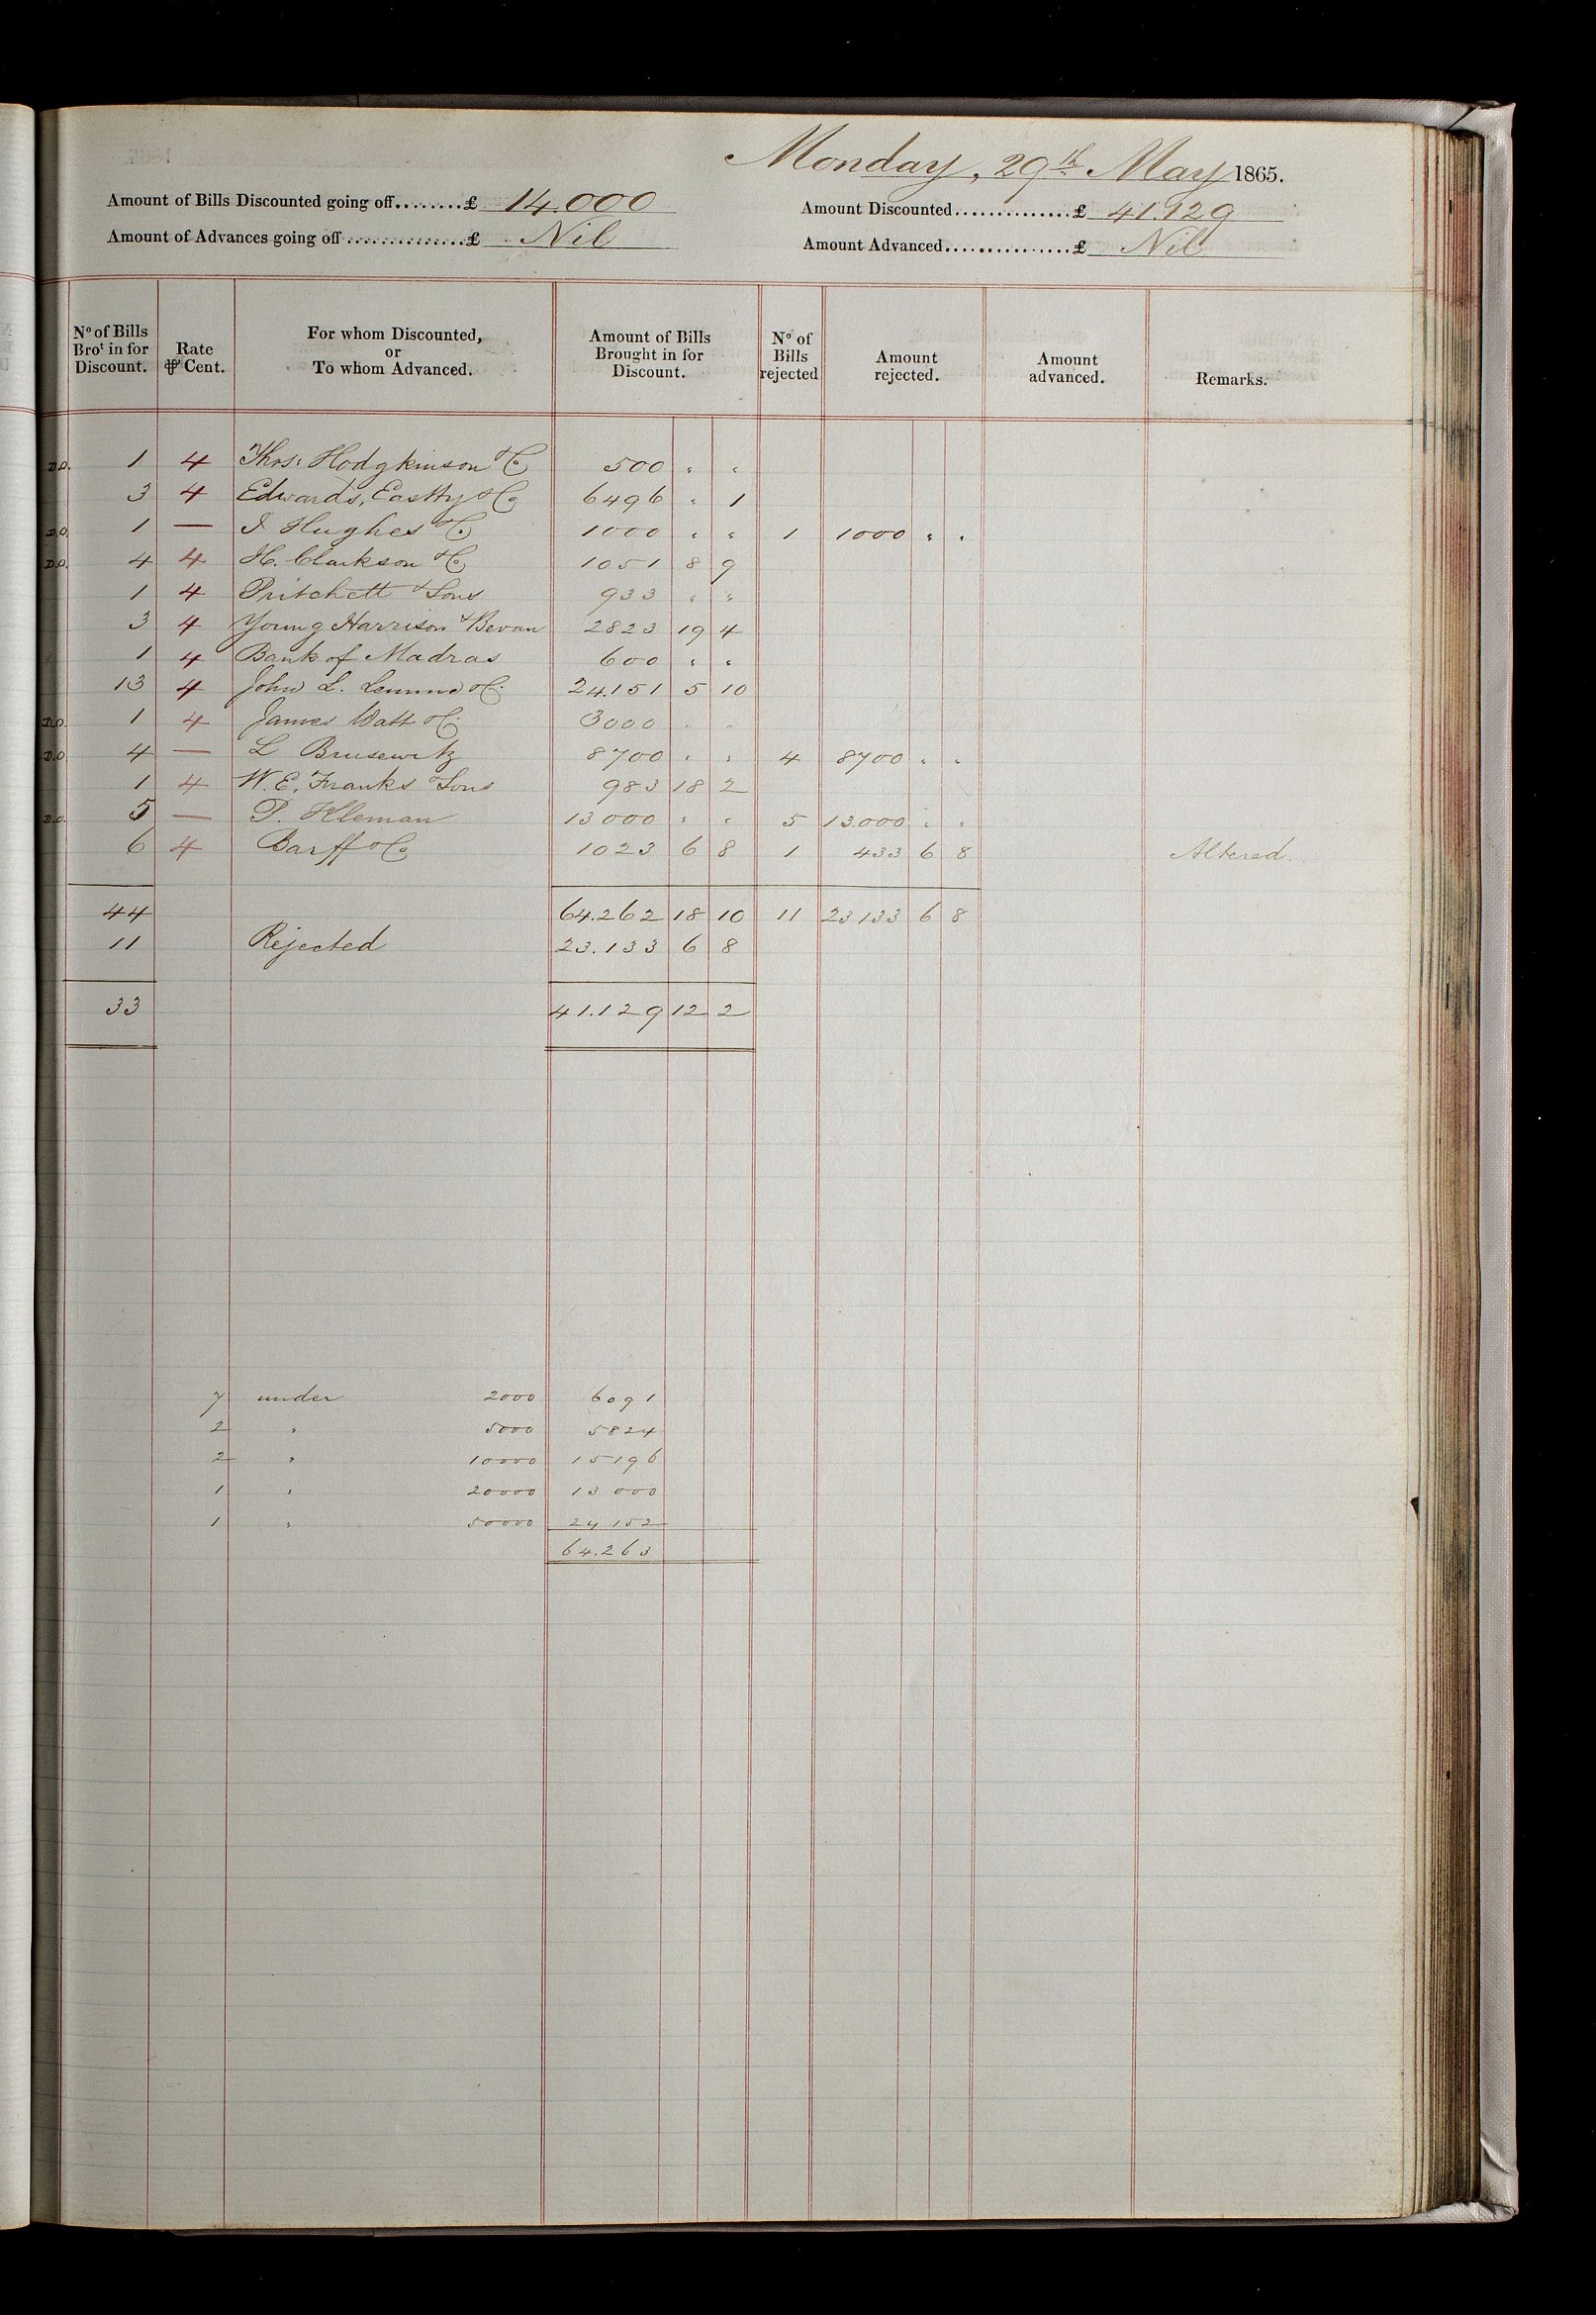 Monday, 29th May 1865.
Amount of Bills Discounted going off........£ 14.000
Amount Discounted..............£ 41.129
Amount of Advances going off...............£ Nil
Amount Advanced...............£ Nil
No of Bills Brot in for Discount. Rate ⅌ Cent. For whom Discounted, or To whom Advanced. Amount of Bills Brought in for Discount. No of Bills rejected Amount rejected. Amount advanced. Remarks.
D.O. 1 4 Thos. Hodgkinson & Co 500 " "
3 4 Edwards, Eastty & Co 6496 " 1
D.O. 1 — I Hughes & Co 1000 " " 1 1000 " "
D.O. 4 4 H. Clarkson & Co 1051 8 9
1 4 Pritchett & Sons 933 " "
3 4 Young Harrison & Bevan 2823 19 4
1 4 Bank of Madras 600 " "
13 4 John L. & Co 24.151 5 10
D.O. 1 4 James Watt & Co 3000 " "
D.O. 4 — L Brusewitz 8700 " " 4 8700 " "
1 4 W. E. Franks & Sons 983 18 2
D.O. 5 — P. Kleman 13000 " " 5 13.000 " "
6 4 Barff & Co 1023 6 8 1 433 6 8 Altered.
44 64.262 18 10 11 23133 6 8
11 Rejected 23.133 6 8
33 41.129 12 2
7 under 2000 6091
2 " 5000 5824
2 " 10000 15196
1 " 20000 13000
1 " 50000 24152
64.263